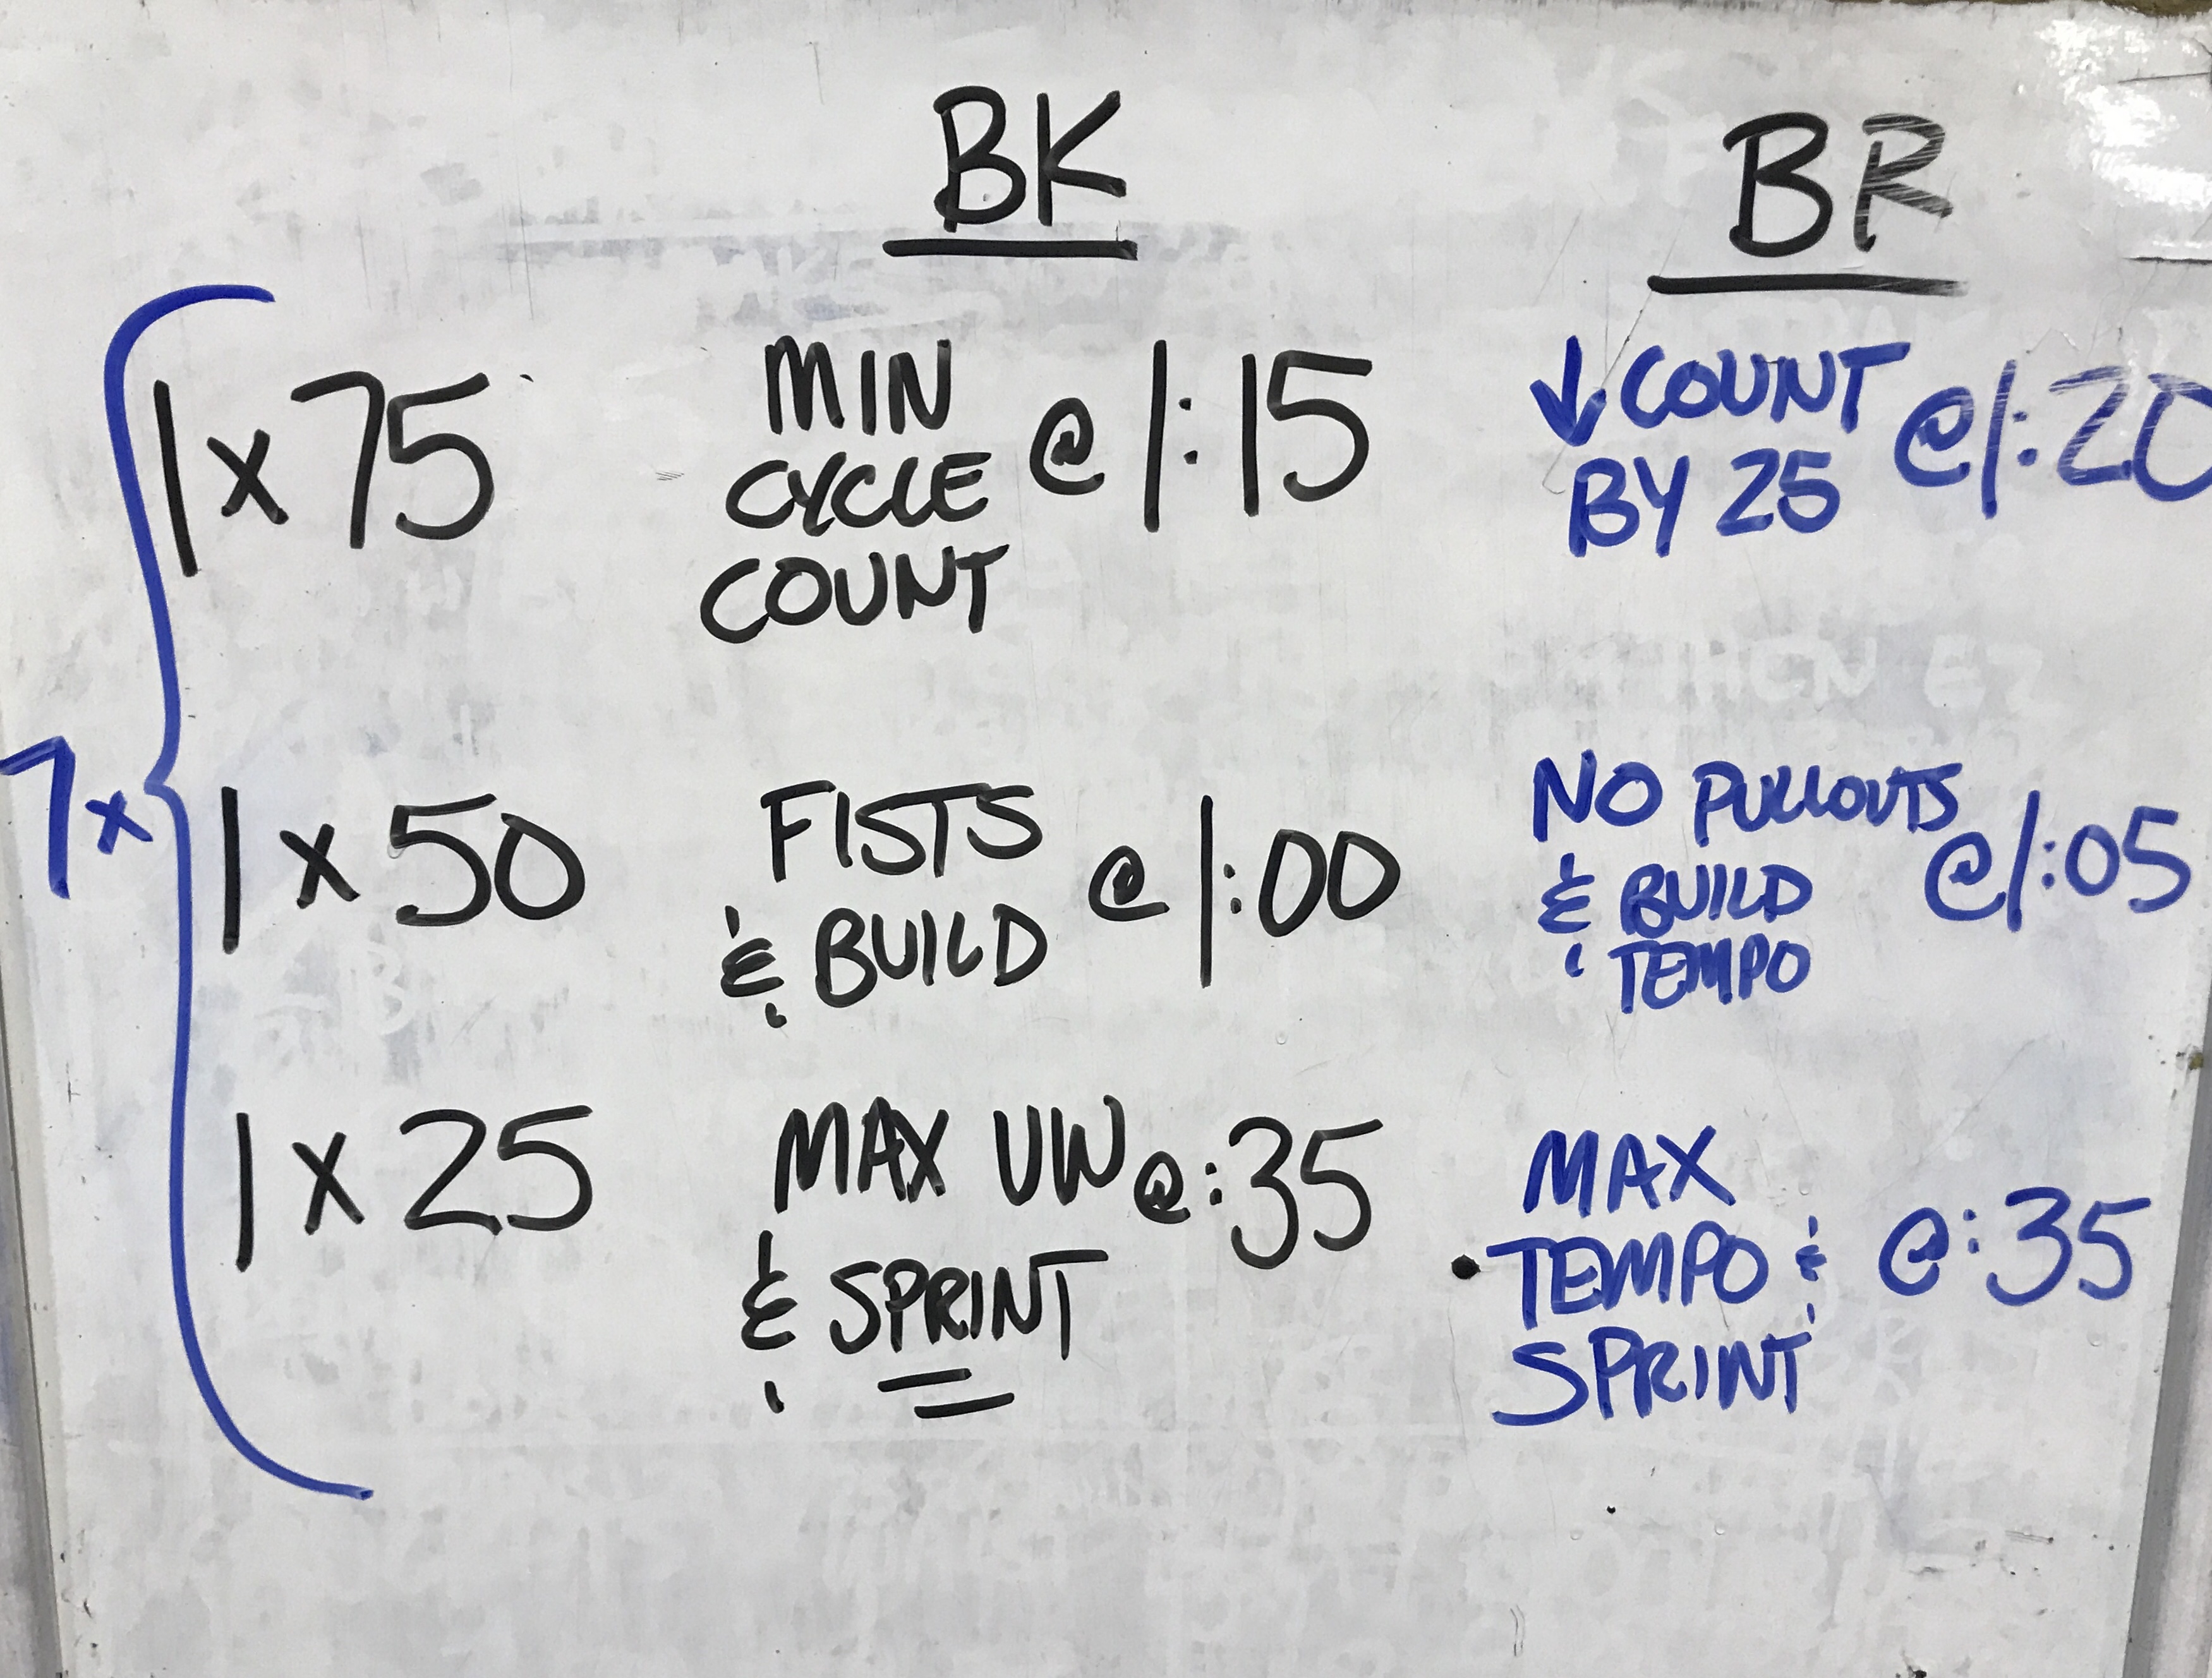 BK
BR
7x
1 x 75
MIN
CYCLE
COUNT
@ 1:15
↓ COUNT
BY 25
@1:20
1 x 50
FISTS
& BUILD
@ 1:00
NO PULLOUTS
& BUILD
TEMPO
@1:05
1 x 25
MAX UW
& SPRINT
@:35
MAX
• TEMPO &
SPRINT
@:35